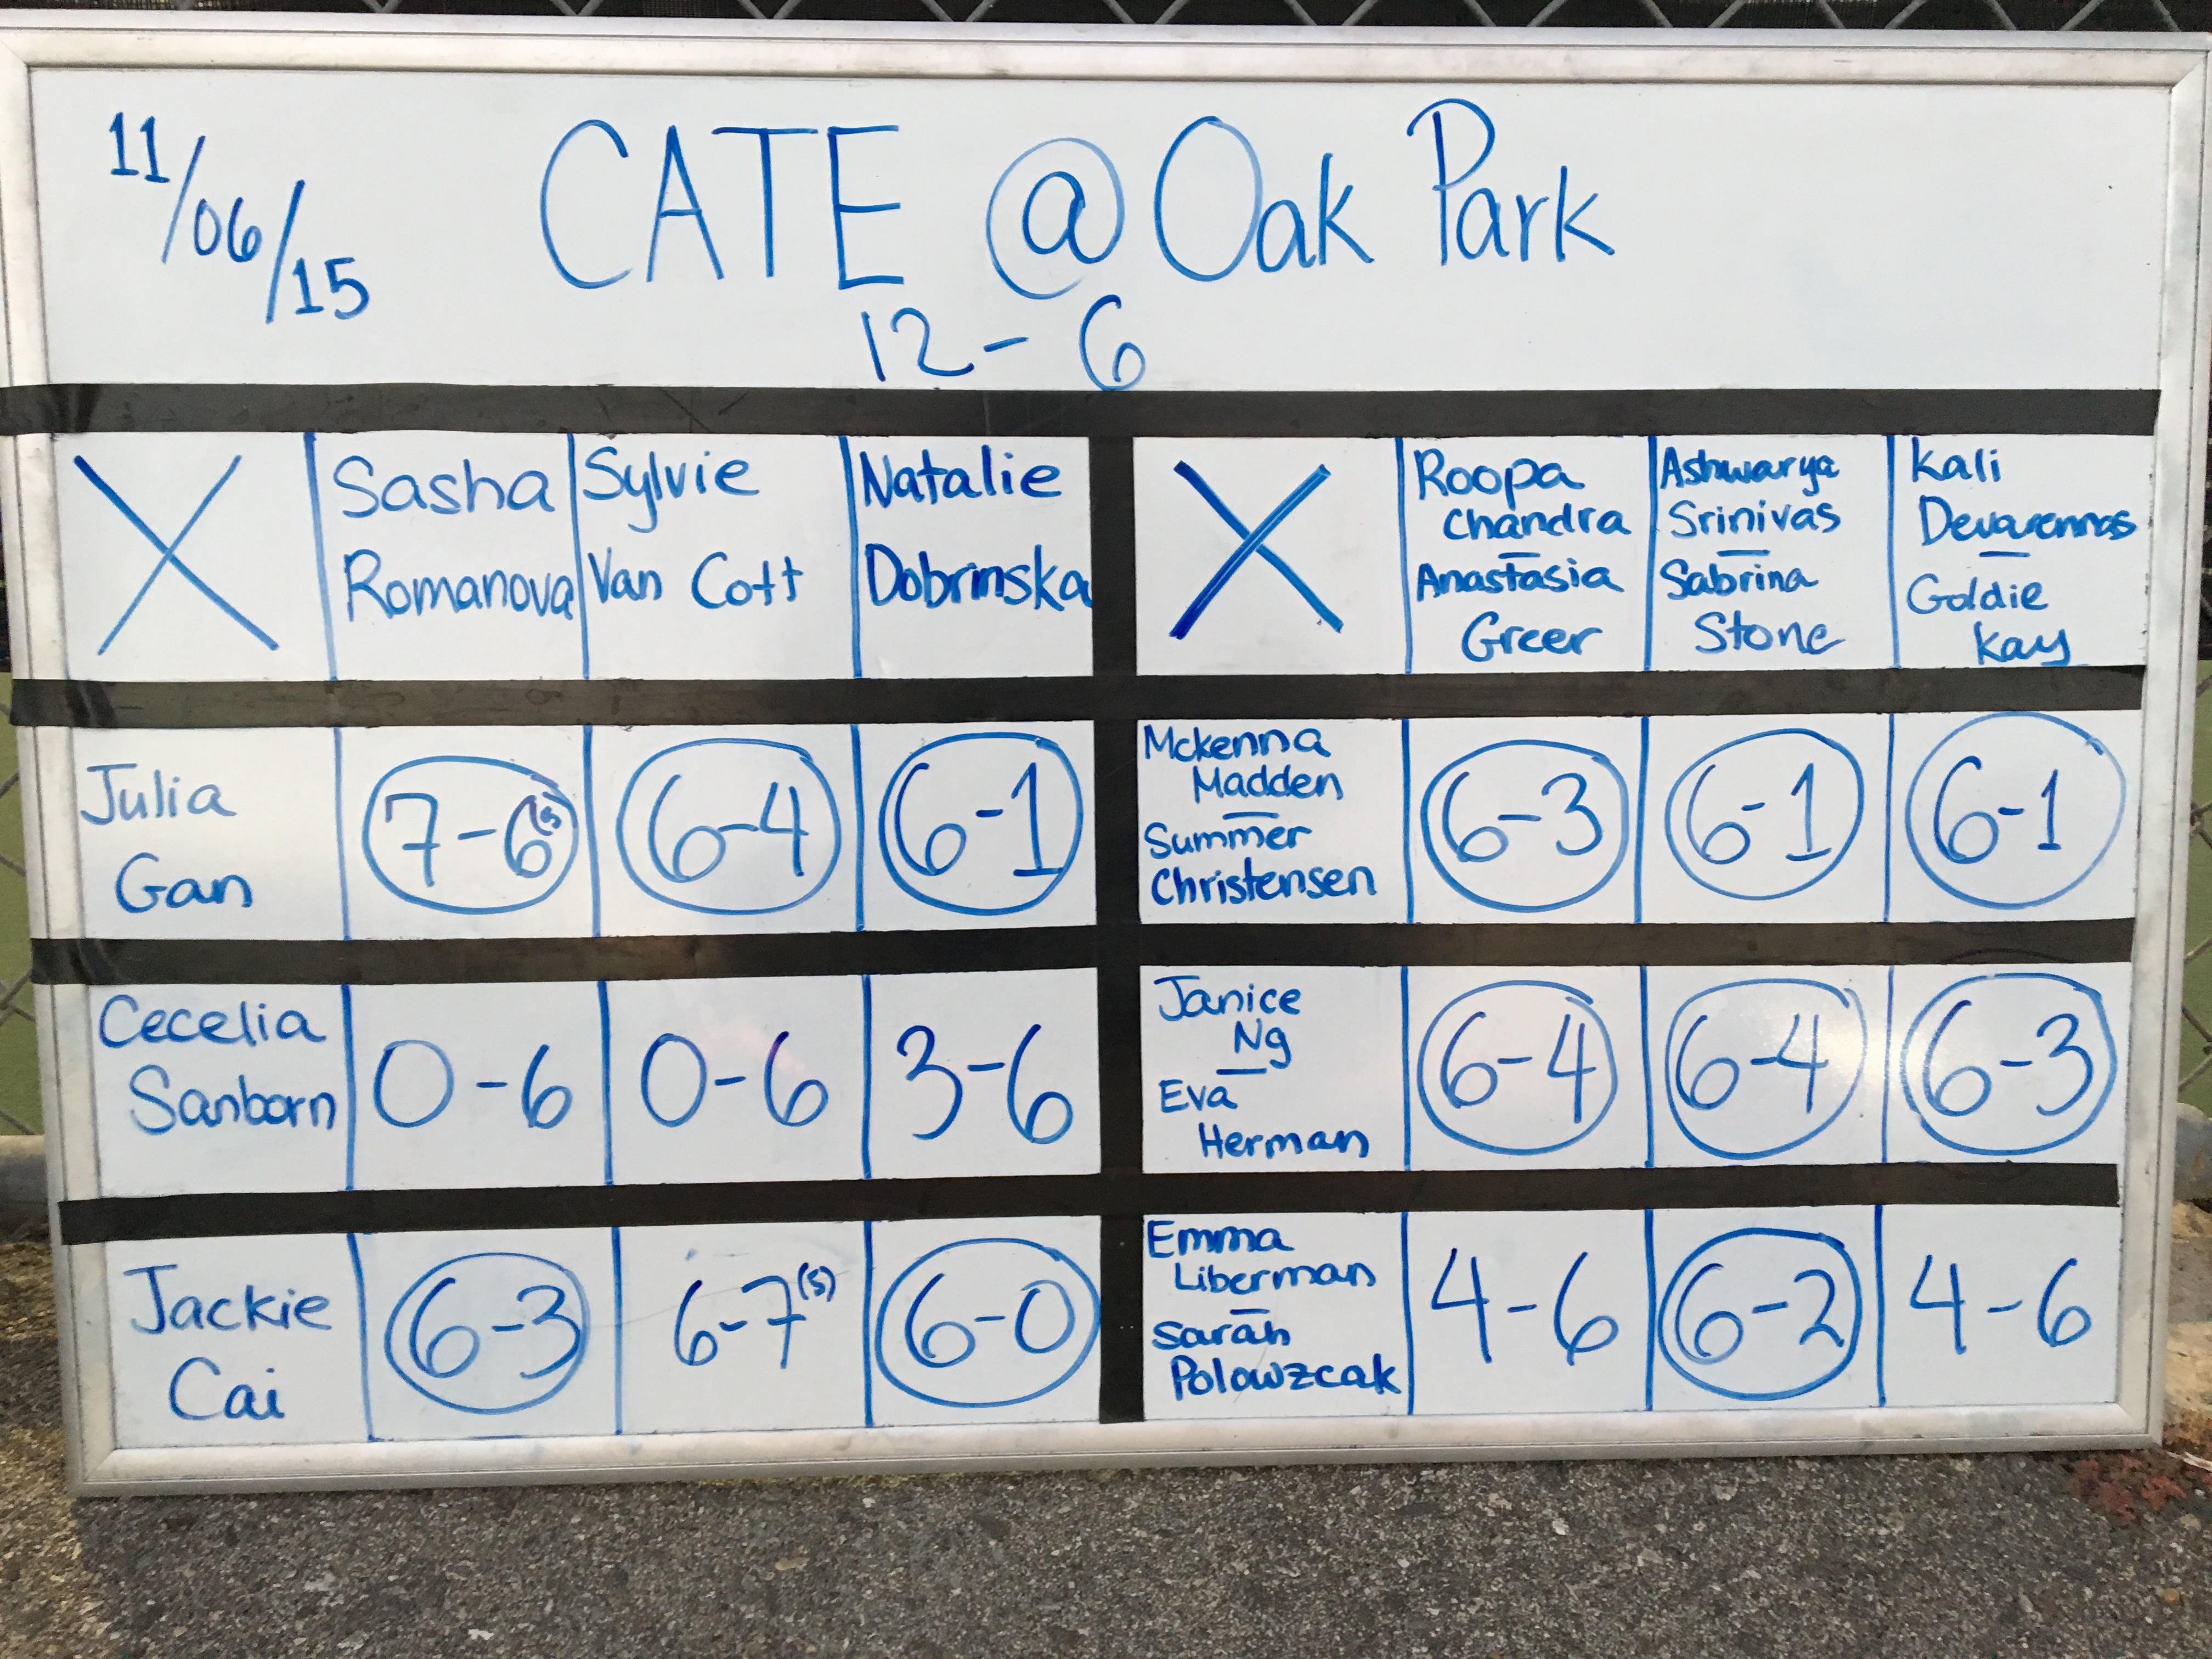 11/06/15
CATE @ Oak Park
12 - 6
Sasha
Romanova
Sylvie
Van Cott
Natalie
Dobrinska
Roopa
Chandra
—
Anastasia
Greer
Ashwarya
Srinivas
—
Sabrina
Stone
Kali
Devarennas
—
Goldie
Kay
Julia
Gan
7-6(5)
6-4
6-1
Mckenna
Madden
—
Summer
Christensen
6-3
6-1
6-1
Cecelia
Sanborn
0-6
0-6
3-6
Janice
Ng
—
Eva
Herman
6-4
6-4
6-3
Jackie
Cai
6-3
6-7(5)
6-0
Emma
Liberman
—
Sarah
Polowzcak
4-6
6-2
4-6